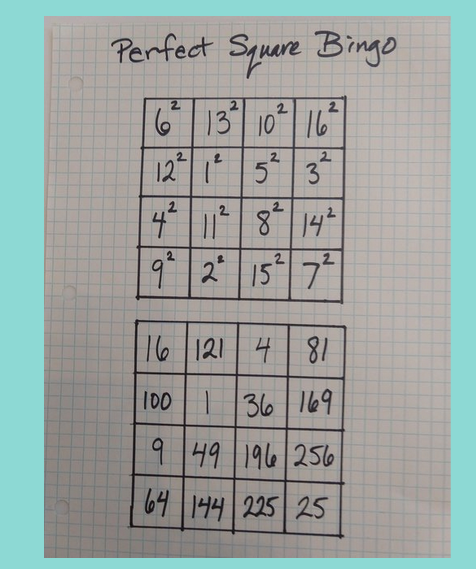 Perfect Square Bingo
6² 13² 10² 16²
12² 1² 5² 3²
4² 11² 8² 14²
9² 2² 15² 7²
16 121 4 81
100 1 36 169
9 49 196 256
64 144 225 25